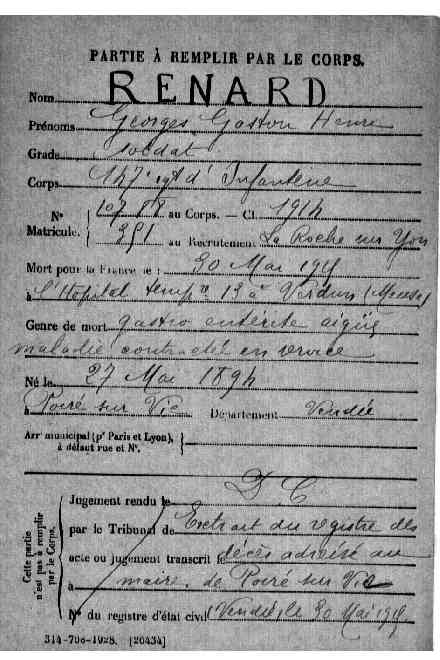 PARTIE À REMPLIR PAR LE CORPS.
Nom RENARD
Prénoms Georges Gaston Henri
Grade soldat
Corps 147e rgt d' Infanterie
N° Matricule. { au Corps. — Cl. 1914
351 au Recrutement La Roche sur Yon
Mort pour la France le : 30 Mai 1915
à l'Hôpital temp.re 13 à Verdun (Meuse)
Genre de mort gastro entérite aigüe
maladie contracté en service
Né le 27 Mai 1894
à Poiré sur Vie Département Vendée
Arrt municipal (pr Paris et Lyon), }
à défaut rue et N°.
D C
Cette partie n'est pas à remplir par le Corps.
Jugement rendu le
par le Tribunal de Extrait du registre des
acte ou jugement transcrit le décès adressé au
à maire de Poiré sur Vie
N° du registre d'état civil (Vendée), le 30 Mai 1915
314-708-1928. [26434]